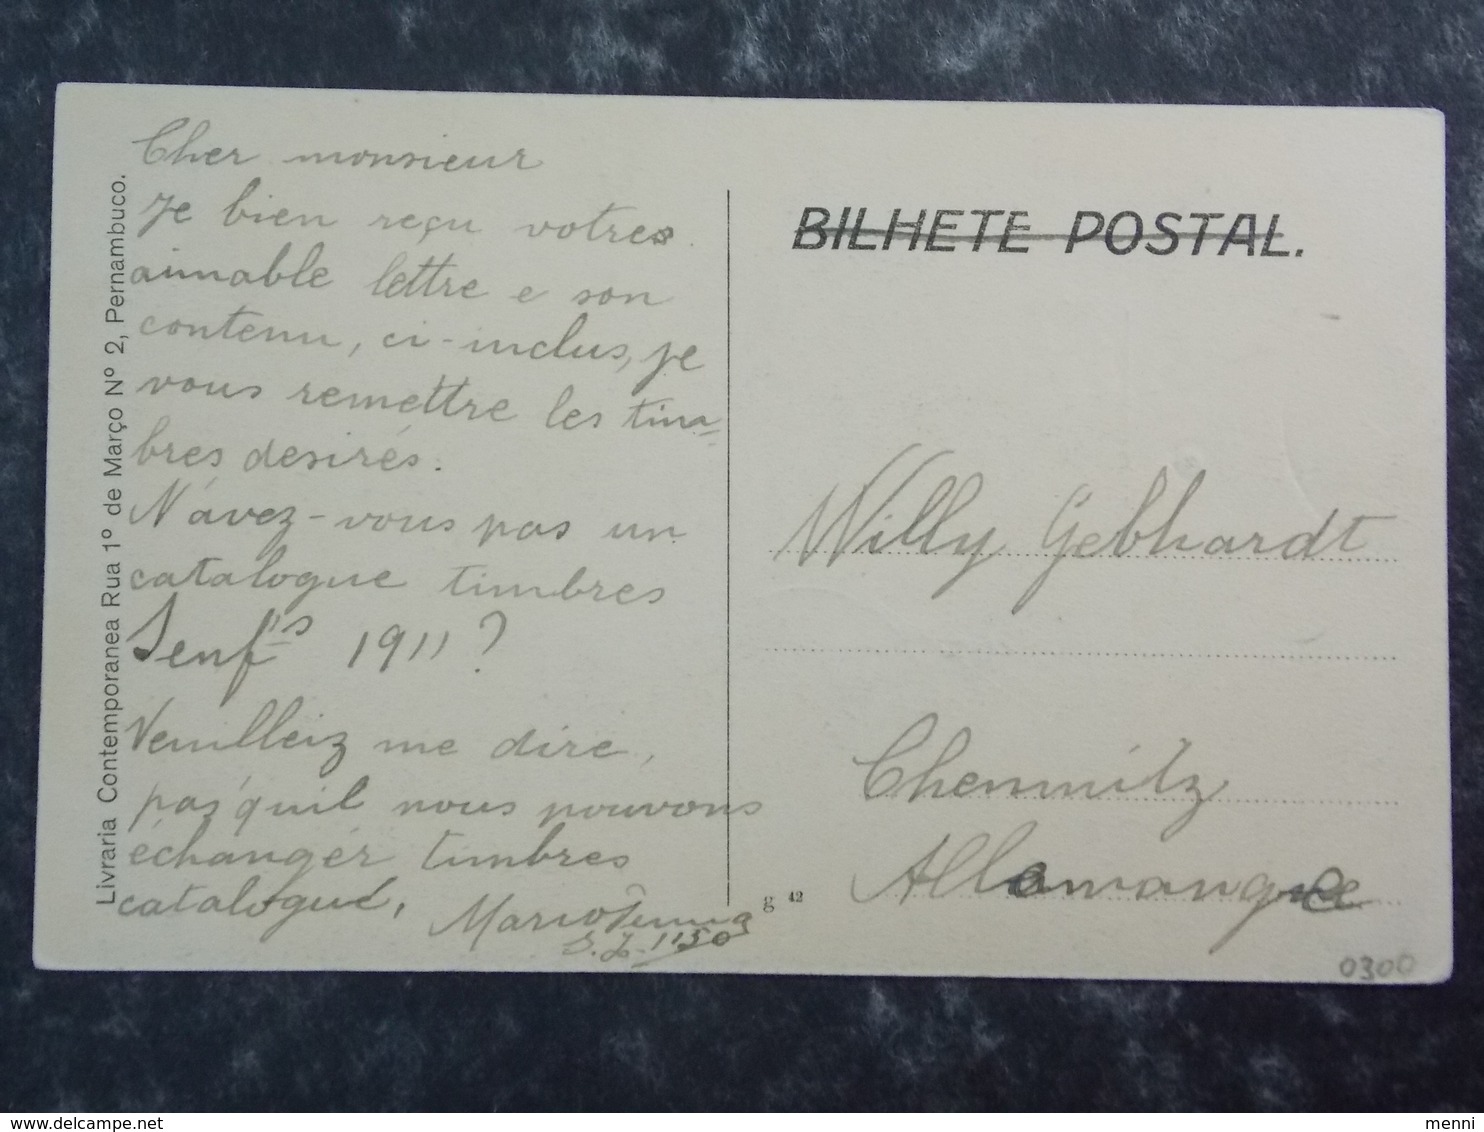 Livraria Contemporanea Rua 1º de Março Nº 2, Pernambuco.
Cher monsieur
Je bien reçu votres
aimable lettre e son
contenu, ci-inclus, je
vous remettre les tim=
bres desirés.
N'avez-vous pas un
catalogue timbres
Senf's 1911?
Veuilleiz me dire,
pas'quil nous pouvons
échangér timbres
catalogué,
Mario
BILHETE POSTAL.
Willy Gebhardt
Chemnitz
Allemangue
g 42
0300
delcampe.net
menni